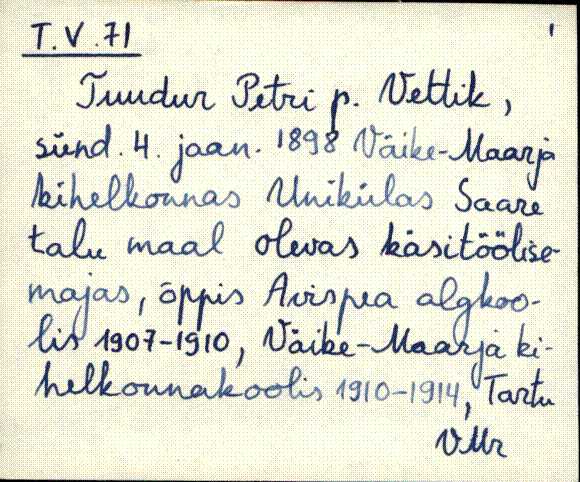 T.V.71 1
Tuudur Petri p. Vettik,
sünd. 4. jaan. 1898 Väike-Maarja
kihelkonnas Unikülas Saare
talu maal olevas käsitöölise-
majas, õppis Avispea algkoo-
lis 1907-1910, Väike-Maarja ki-
helkonnakoolis 1910-1914, Tartu
VMr